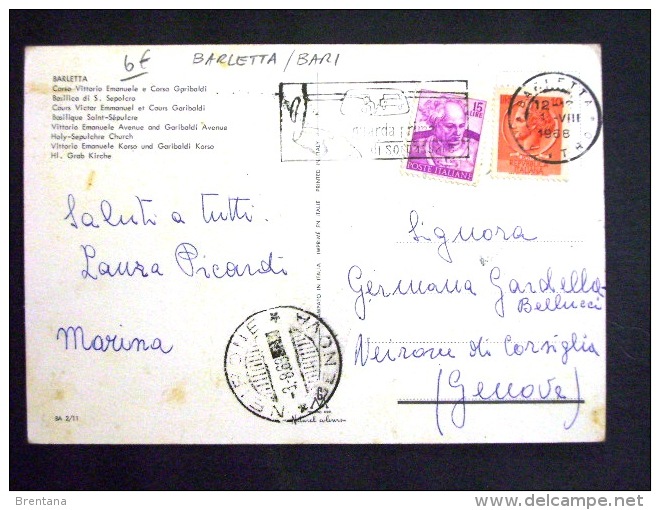 6€ BARLETTA/BARI
BARLETTA
Corso Vittorio Emanuele e Corso Garibaldi
Basilica di S. Sepolcro
Cours Victor Emmanuel et Cours Garibaldi
Basilique Saint-Sépulcre
Vittorio Emanuele Avenue and Garibaldi Avenue
Holy-Sepulchre Church
Vittorio Emanuele Korso und Garibaldi Korso
Hl. Grab Kirche
15
LIRE
POSTE ITALIANE
BARLETTA
12-
VIII
1968
Saluti a tutti.
Laura Picardi
Marina
IMPRIMÉ EN ITALIE PRINTED IN ITALY
Signora
Germana Gardella-
Bellucci
Neirone di Corsiglia
(Genova)
NEIRONE
GENOVA
BA 2/11
Brentana
delcampe.net